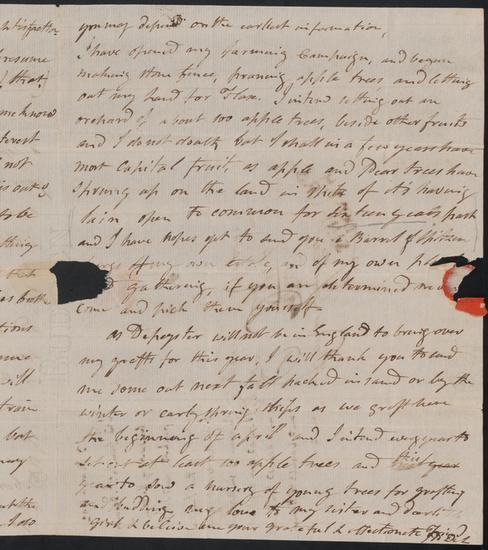 you may depend on the earliest information,
I have opened my Farming Campaign, and begun
making stone fence, pruning apple trees and letting
out my land for Flax. I intend setting out an
orchard of about 100 apple trees, beside other fruits
and I do not doubt, but I shall in a few years have
most Capital fruit, as apple and Pear trees have
sprung up on the land in spite of its having
lain open to common for sixteen years past
and I have hopes to send you a Barrel of
my own of my own
gathering, if you are determined
come and pick them yourself
As Depeyster will not be in England to bring over
my grafts for this year, I will thank you to send
me some out next fall packed in sand or by the
winter or early spring ships as we graft here
the beginning of april and I intend every year to
set out at least 100 apple trees and
year to sow a nursery of young trees for grafting
and budding my love to my sister and
girls & believe me your grateful & affectionate Friend
satisfaction
resume
that
me know
interest
not
is out of
to be
thing
that
both
tions
me
will
train
but
may
at the